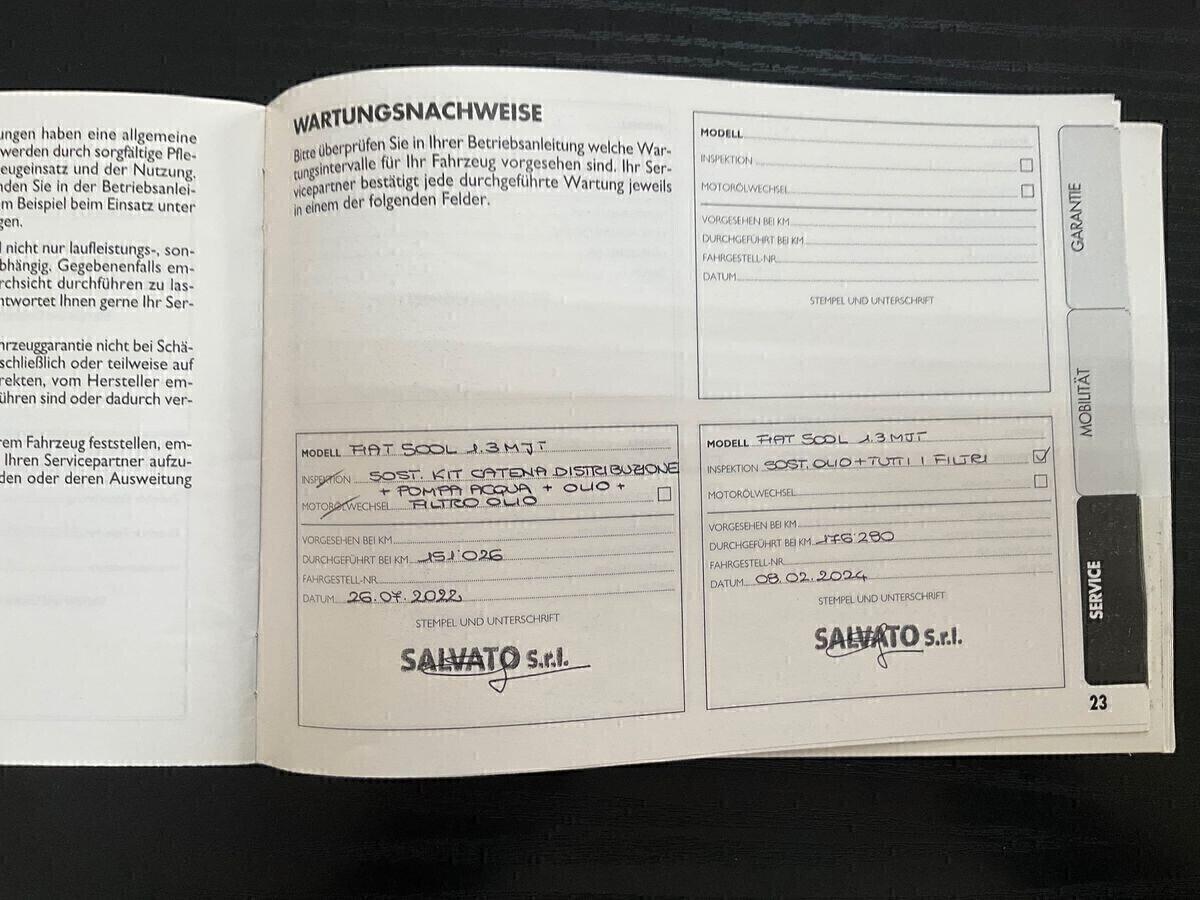 ungen haben eine allgemeine
werden durch sorgfältige Pfle-
eugeinsatz und der Nutzung.
nden Sie in der Betriebsanlei-
m Beispiel beim Einsatz unter
gen.
nicht nur laufleistungs-, son-
bhängig. Gegebenenfalls em-
rchsicht durchführen zu las-
ntwortet Ihnen gerne Ihr Ser-
hrzeuggarantie nicht bei Schä-
schließlich oder teilweise auf
rekten, vom Hersteller em-
ühren sind oder dadurch ver-
rem Fahrzeug feststellen, em-
Ihren Servicepartner aufzu-
den oder deren Ausweitung
WARTUNGSNACHWEISE
Bitte überprüfen Sie in Ihrer Betriebsanleitung welche War-
tungsintervalle für Ihr Fahrzeug vorgesehen sind. Ihr Ser-
vicepartner bestätigt jede durchgeführte Wartung jeweils
in einem der folgenden Felder.
MODELL
INSPEKTION
MOTORÖLWECHSEL
VORGESEHEN BEI KM
DURCHGEFÜHRT BEI KM
FAHRGESTELL-NR.
DATUM
STEMPEL UND UNTERSCHRIFT
MODELL FIAT 500L 1.3 MJT
INSPEKTION SOST. KIT CATENA DISTRIBUZIONE
+ POMPA ACQUA + OLIO +
MOTORÖLWECHSEL FILTRO OLIO
VORGESEHEN BEI KM
DURCHGEFÜHRT BEI KM 151'026
FAHRGESTELL-NR.
DATUM 26.07.2022
STEMPEL UND UNTERSCHRIFT
SALVATO S.r.l.
MODELL FIAT 500L 1.3 MJT
INSPEKTION SOST. OLIO + TUTTI I FILTRI
MOTORÖLWECHSEL
VORGESEHEN BEI KM
DURCHGEFÜHRT BEI KM 176'280
FAHRGESTELL-NR.
DATUM 08.02.2024
STEMPEL UND UNTERSCHRIFT
SALVATO S.r.l.
GARANTIE
MOBILITÄT
SERVICE
23